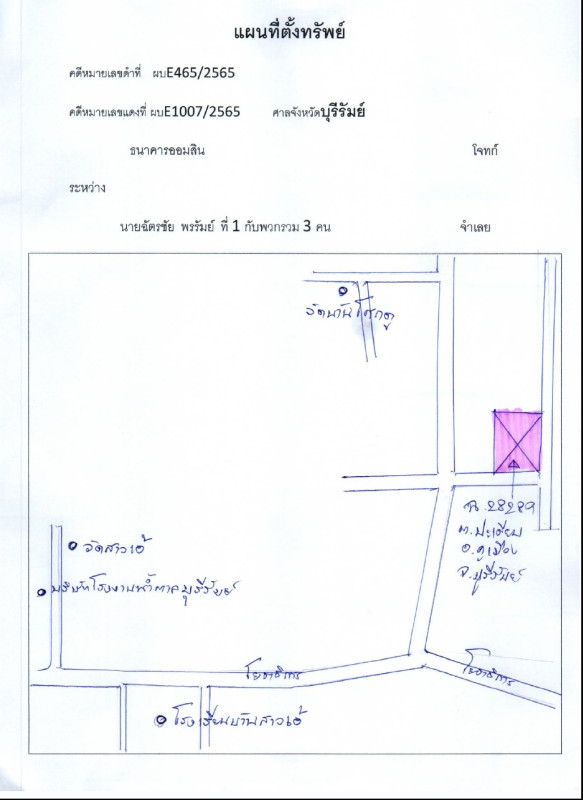 แผนที่ตั้งทรัพย์
คดีหมายเลขดำที่ ผบE465/2565
คดีหมายเลขแดงที่ ผบE1007/2565 ศาลจังหวัดบุรีรัมย์
ธนาคารออมสิน โจทก์
ระหว่าง
นายฉัตรชัย พรรัมย์ ที่ 1 กับพวกรวม 3 คน จำเลย
วัดบ้านโศกดู
ฉ.28289
ต.ปะเคียบ
อ.คูเมือง
จ.บุรีรัมย์
วัดสาวเอ้
บริษัทโรงงานน้ำตาลบุรีรัมย์
โยธาธิการ
โยธาธิการ
โรงเรียนบ้านสาวเอ้